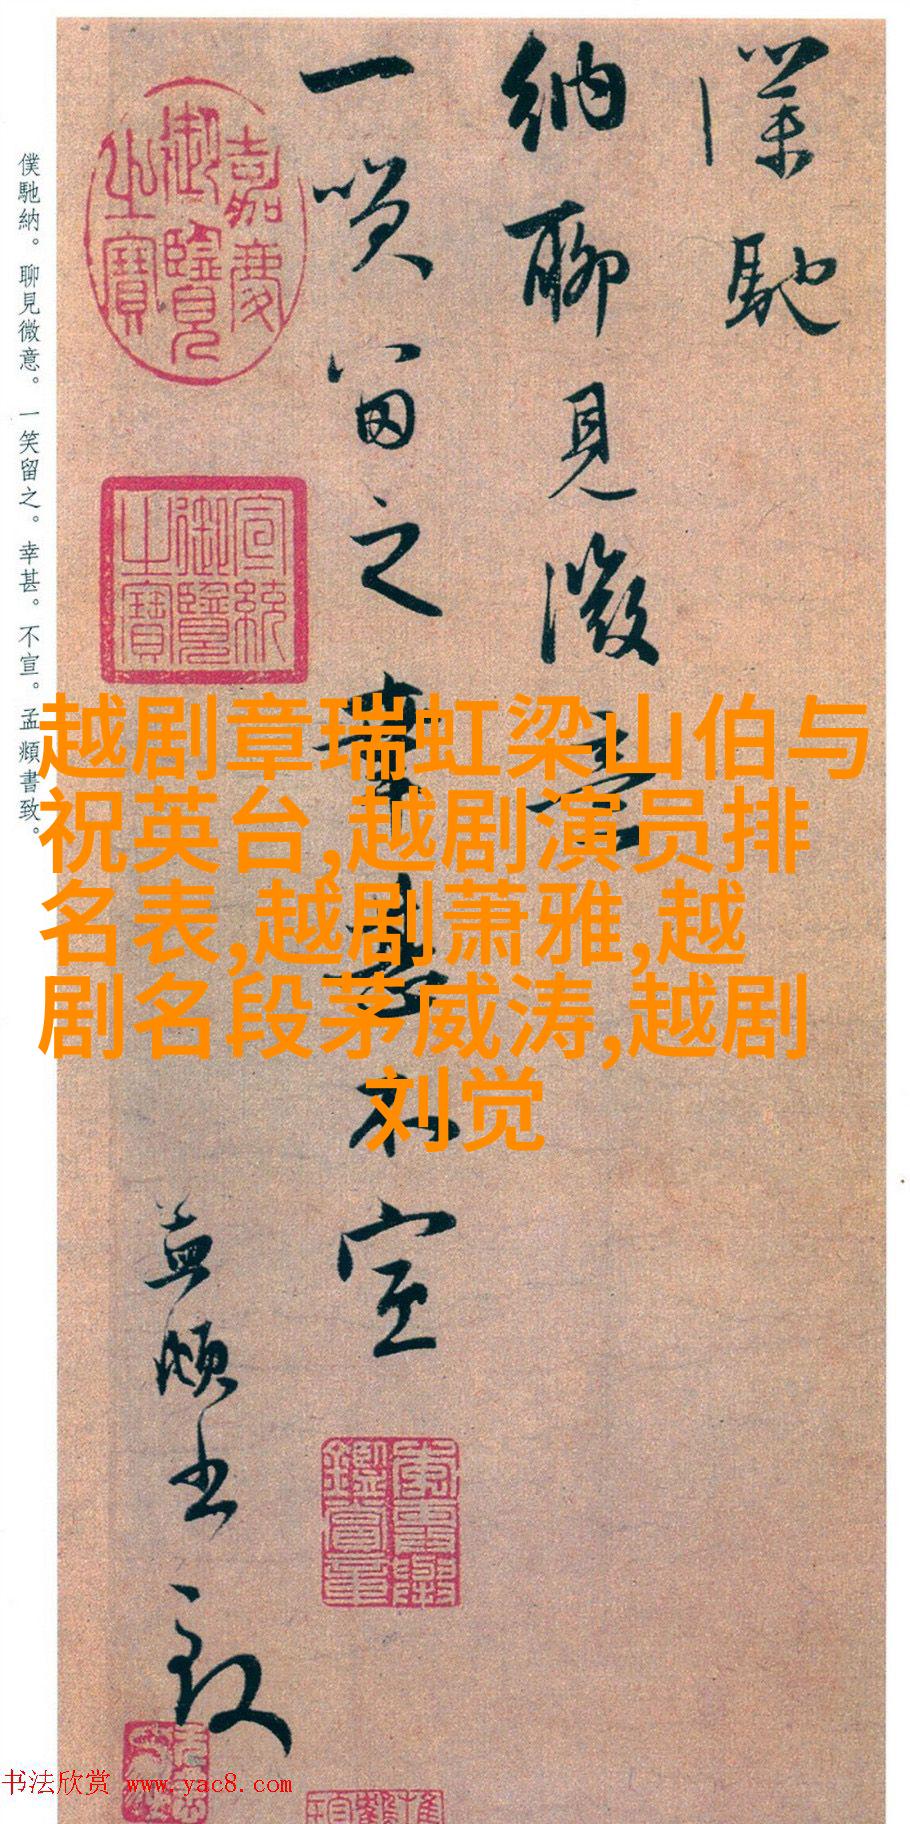 僕馳
納聊見微意
一笑留之幸甚不宣
孟頫書致
僕馳納。聊見微意。一笑留之。幸甚。不宣。孟頫書致。
嘉慶
御覽
之寶
宣統
御覽
之寶
越剧章瑞虹梁山伯与
祝英台,越剧演员排
名表,越剧萧雅,越
剧名段茅威涛,越剧
刘觉
书法欣赏 www.yac8.com